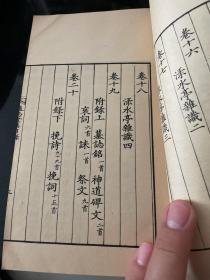 卷十六
淥水亭雜識二
卷十七
卷十八
淥水亭雜識四
卷十九
附錄上 墓誌銘一首 神道碑文二首
哀詞六首 誄一首 祭文九首
卷二十
附錄下 挽詩九十九首 挽詞十五首